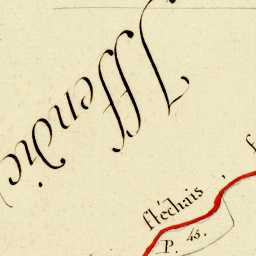 Iffendic
fléchais
P. 45.